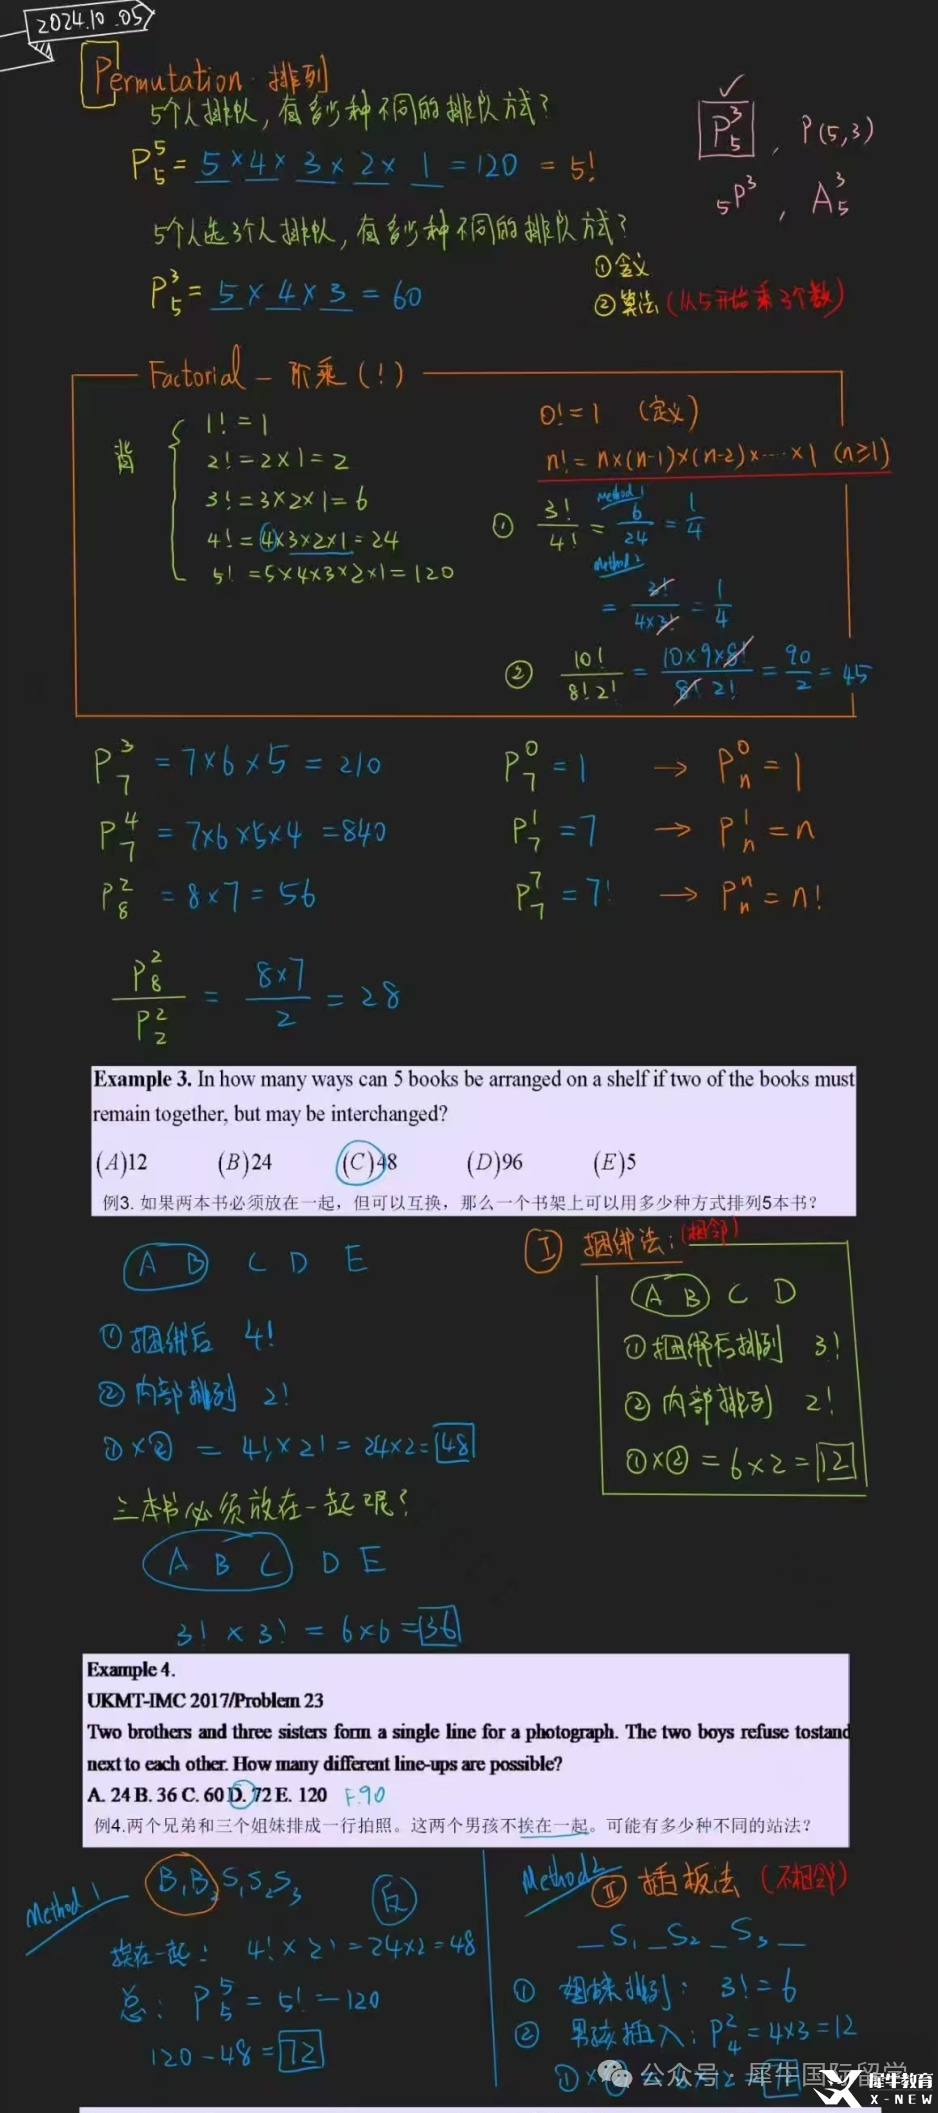 2024.10.05
Permutation 排列
5个人排队,有多少种不同的排队方式?
P₅⁵ = 5 × 4 × 3 × 2 × 1 = 120 = 5!
P₅³ , P(5,3)
₅P³ , A₅³
5个人选3个人排队,有多少种不同的排队方式?
P₅³ = 5 × 4 × 3 = 60
①含义
②算法(从5开始乘3个数)
Factorial - 阶乘(!)
背
1! = 1
2! = 2×1 = 2
3! = 3×2×1 = 6
4! = 4×3×2×1 = 24
5! = 5×4×3×2×1 = 120
0! = 1 (定义)
n! = n×(n-1)×(n-2)×……×1 (n≥1)
Method 1
① 3!/4! = 6/24 = 1/4
Method 2
= 3!/4×3! = 1/4
② 10!/8!2! = 10×9×8!/8!2! = 90/2 = 45
P₇³ = 7×6×5 = 210
P₇⁴ = 7×6×5×4 = 840
P₈² = 8×7 = 56
P₇⁰ = 1 → Pₙ⁰ = 1
P₇¹ = 7 → Pₙ¹ = n
P₇⁷ = 7! → Pₙⁿ = n!
P₈²/P₂² = 8×7/2 = 28
Example 3. In how many ways can 5 books be arranged on a shelf if two of the books must
remain together, but may be interchanged?
(A)12 (B)24 (C)48 (D)96 (E)5
例3. 如果两本书必须放在一起，但可以互换，那么一个书架上可以用多少种方式排列5本书?
A B C D E
①捆绑后 4!
②内部排列 2!
①×② = 4!×2! = 24×2 = 48
Ⅰ 捆绑法:(相邻)
A B C D
①捆绑后排列 3!
②内部排列 2!
①×② = 6×2 = 12
三本书必须放在一起呢?
A B C D E
3! × 3! = 6×6 = 36
Example 4.
UKMT-IMC 2017/Problem 23
Two brothers and three sisters form a single line for a photograph. The two boys refuse tostand
next to each other. How many different line-ups are possible?
A. 24 B. 36 C. 60 D. 72 E. 120 F.90
例4.两个兄弟和三个姐妹排成一行拍照。这两个男孩不挨在一起。可能有多少种不同的站法?
Method 1
B₁B₂ S₁S₂S₃ 反
挨在一起: 4!×2! = 24×2 = 48
总: P₅⁵ = 5! = 120
120-48 = 72
Method 2 Ⅱ 插板法 (不相邻)
_S₁_S₂_S₃_
① 姐妹排列: 3! = 6
② 男孩插入: P₄² = 4×3 = 12
公众号 · 犀牛国际留学
犀牛教育
X-NEW